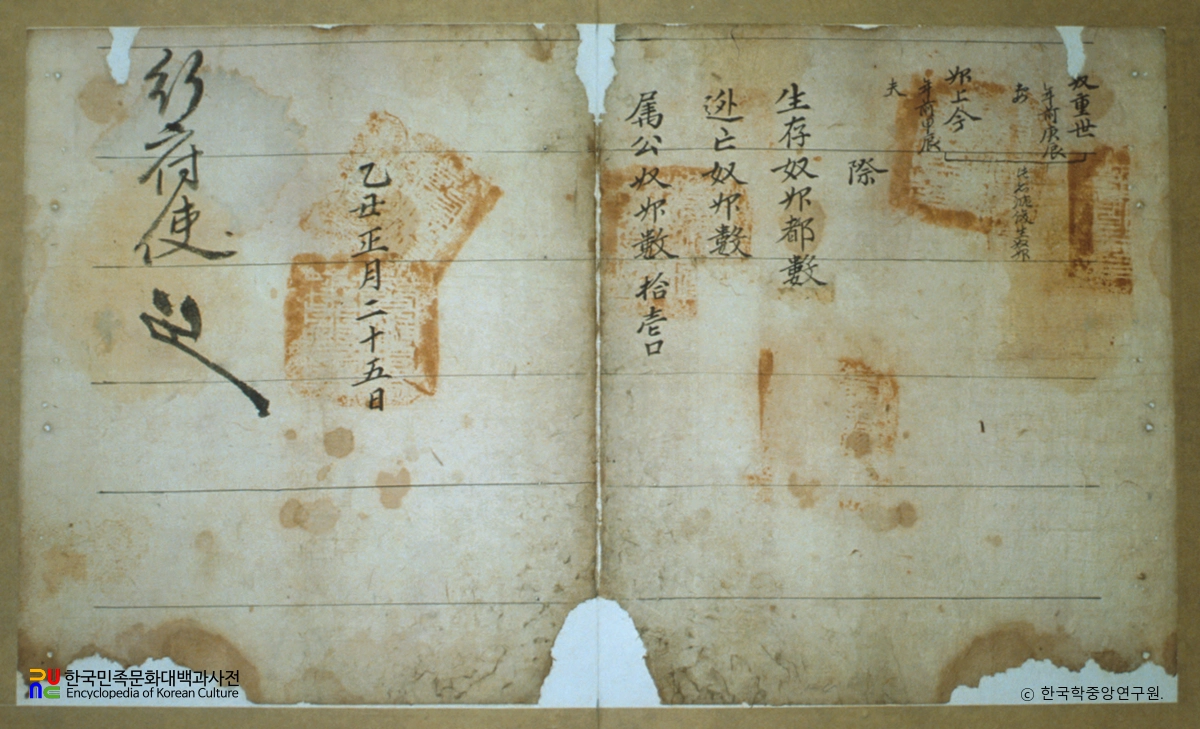 奴重世
年前庚辰
婢上今
年前甲辰
夫
際
生存奴婢都數
逃亡奴婢數
属公奴婢數拾壱口
乙丑正月二十五日
行府使
한국민족문화대백과사전
Encyclopedia of Korean Culture
ⓒ 한국학중앙연구원.